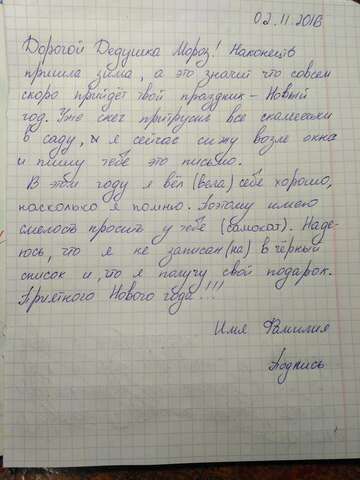 02.11.2016
Дорогой Дедушка Мороз! Наконец-то
пришла зима, а это значит что совсем
скоро прийдёт твой праздник - Новый
год. Уже снег притрусил все скамейки
в саду, и я сейчас сижу возле окна
и пишу тебе это письмо.
В этом году я вёл (вела) себе хорошо,
насколько я помню. Поэтому имею
смелость просить у тебе (самокат). Наде-
юсь, что я не записан(на) в чёрный
список и, что я получу свой подарок.
Приятного Нового года!!!
Имя Фамилия
Подпись